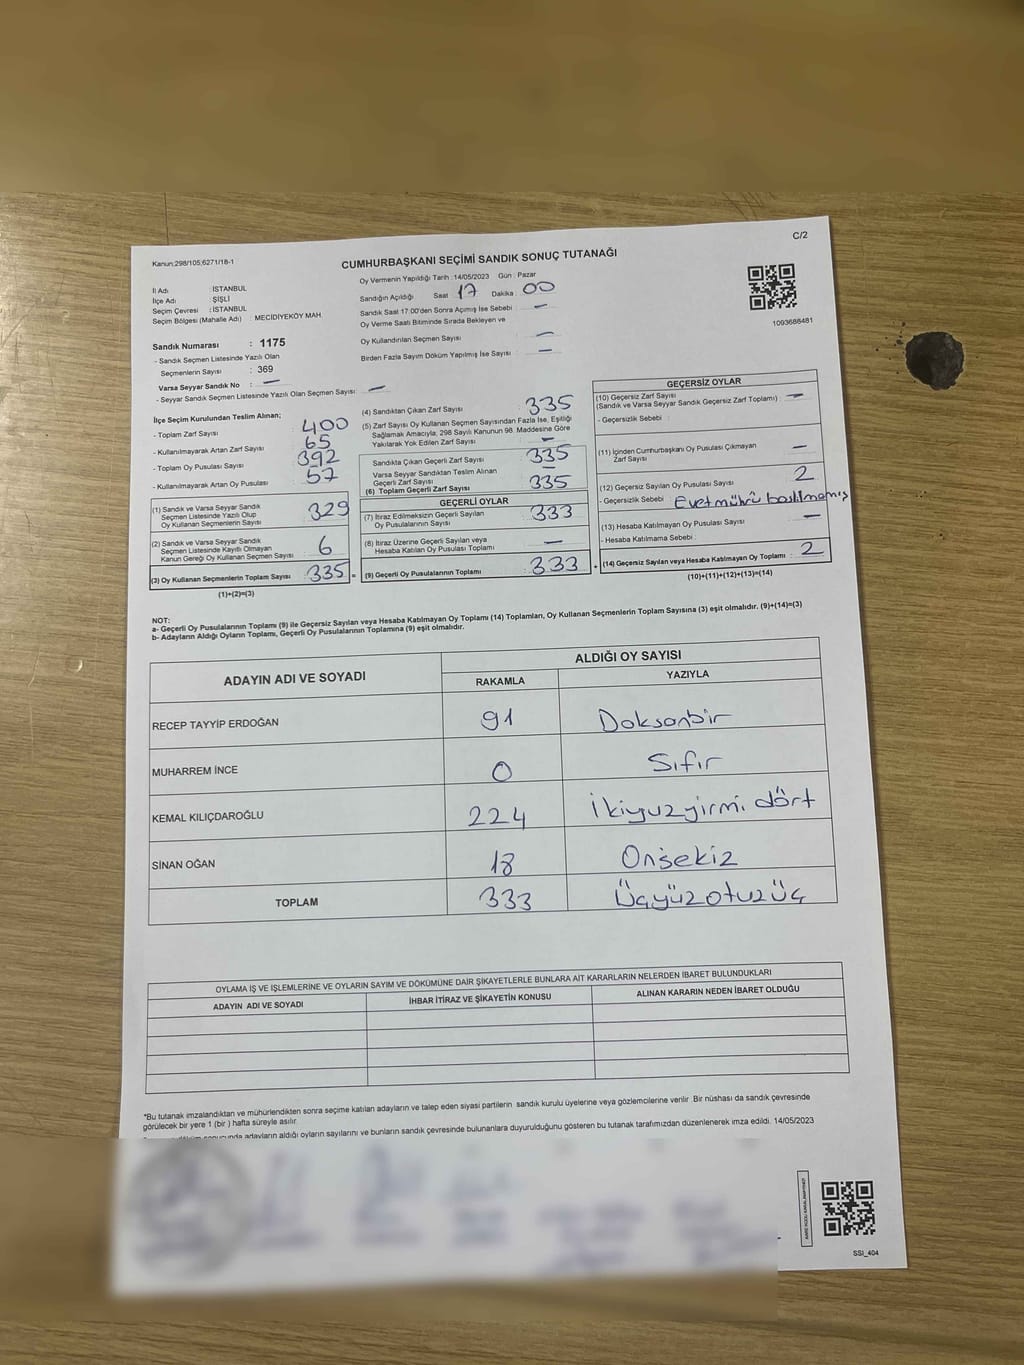 Kanun;298/105,6271/18-1
C/2
CUMHURBAŞKANI SEÇİMİ SANDIK SONUÇ TUTANAĞI
İl Adı İSTANBUL
İlçe Adı : ŞİŞLİ
Seçim Çevresi : İSTANBUL
Seçim Bölgesi (Mahalle Adı) : MECİDİYEKÖY MAH.
Oy Vermenin Yapıldığı Tarih : 14/05/2023 Gün : Pazar
Sandığın Açıldığı Saat : 17 Dakika : 00
Sandık Saat 17:00'den Sonra Açımış İse Sebebi : —
Oy Verme Saati Bitiminde Sırada Bekleyen ve
Oy Kullandırılan Seçmen Sayısı : —
Birden Fazla Sayım Döküm Yapılmış İse Sayısı : —
1093688481
Sandık Numarası : 1175
- Sandık Seçmen Listesinde Yazılı Olan
Seçmenlerin Sayısı : 369
Varsa Seyyar Sandık No : —
- Seyyar Sandık Seçmen Listesinde Yazılı Olan Seçmen Sayısı : —
İlçe Seçim Kurulundan Teslim Alınan;
- Toplam Zarf Sayısı : 400
- Kullanılmayarak Artan Zarf Sayısı : 65
- Toplam Oy Pusulası Sayısı : 392
- Kullanılmayarak Artan Oy Pusulası : 57
(1) Sandık ve Varsa Seyyar Sandık
Seçmen Listesinde Yazılı Olup
Oy Kullanan Seçmenlerin Sayısı : 329
(2) Sandık ve Varsa Seyyar Sandık
Seçmen Listesinde Kayıtlı Olmayan
Kanun Gereği Oy Kullanan Seçmen Sayısı : 6
(3) Oy Kullanan Seçmenlerin Toplam Sayısı : 335 =
(1)+(2)=(3)
(4) Sandıktan Çıkan Zarf Sayısı : 335
(5) Zarf Sayısı Oy Kullanan Seçmen Sayısından Fazla İse, Eşitliği
Sağlamak Amacıyla; 298 Sayılı Kanunun 98. Maddesine Göre
Yakılarak Yok Edilen Zarf Sayısı : —
Sandıkta Çıkan Geçerli Zarf Sayısı : 335
Varsa Seyyar Sandıktan Teslim Alınan
Geçerli Zarf Sayısı : —
(6) Toplam Geçerli Zarf Sayısı : 335
GEÇERLİ OYLAR
(7) İtiraz Edilmeksizin Geçerli Sayılan
Oy Pusulalarının Sayısı : 333
(8) İtiraz Üzerine Geçerli Sayılan veya
Hesaba Katılan Oy Pusulası Toplamı : —
(9) Geçerli Oy Pusulalarının Toplamı : 333 +
GEÇERSİZ OYLAR
(10) Geçersiz Zarf Sayısı : —
(Sandık ve Varsa Seyyar Sandık Geçersiz Zarf Toplamı)
- Geçersizlik Sebebi :
(11) İçinden Cumhurbaşkanı Oy Pusulası Çıkmayan
Zarf Sayısı : —
(12) Geçersiz Sayılan Oy Pusulası Sayısı : 2
- Geçersizlik Sebebi : Evet mührü basılmamış
(13) Hesaba Katılmayan Oy Pusulası Sayısı : —
- Hesaba Katılmama Sebebi :
(14) Geçersiz Sayılan veya Hesaba Katılmayan Oy Toplamı : 2
(10)+(11)+(12)+(13)=(14)
NOT:
a- Geçerli Oy Pusulalarının Toplamı (9) ile Geçersiz Sayılan veya Hesaba Katılmayan Oy Toplamı (14) Toplamları, Oy Kullanan Seçmenlerin Toplam Sayısına (3) eşit olmalıdır. (9)+(14)=(3)
b- Adayların Aldığı Oyların Toplamı, Geçerli Oy Pusulalarının Toplamına (9) eşit olmalıdır.
ADAYIN ADI VE SOYADI ALDIĞI OY SAYISI
RAKAMLA YAZIYLA
RECEP TAYYİP ERDOĞAN 91 Doksanbir
MUHARREM İNCE 0 Sıfır
KEMAL KILIÇDAROĞLU 224 İkiyuzyirmi dört
SİNAN OĞAN 18 Onsekiz
TOPLAM 333 Üçyüzotuzüç
OYLAMA İŞ VE İŞLEMLERİNE VE OYLARIN SAYIM VE DÖKÜMÜNE DAİR ŞİKAYETLERLE BUNLARA AİT KARARLARIN NELERDEN İBARET BULUNDUKLARI
ADAYIN ADI VE SOYADI İHBAR İTİRAZ VE ŞİKAYETİN KONUSU ALINAN KARARIN NEDEN İBARET OLDUĞU
*Bu tutanak imzalandıktan ve mühürlendikten sonra seçime katılan adayların ve talep eden siyasi partilerin sandık kurulu üyelerine veya gözlemcilerine verilir. Bir nüshası da sandık çevresinde
görülecek bir yere 1 (bir ) hafta süreyle asılır.
adayların aldığı oyların sayılarını ve bunların sandık çevresinde bulunanlara duyurulduğunu gösteren bu tutanak tarafımızdan düzenlenerek imza edildi. 14/05/2023
SSI_404